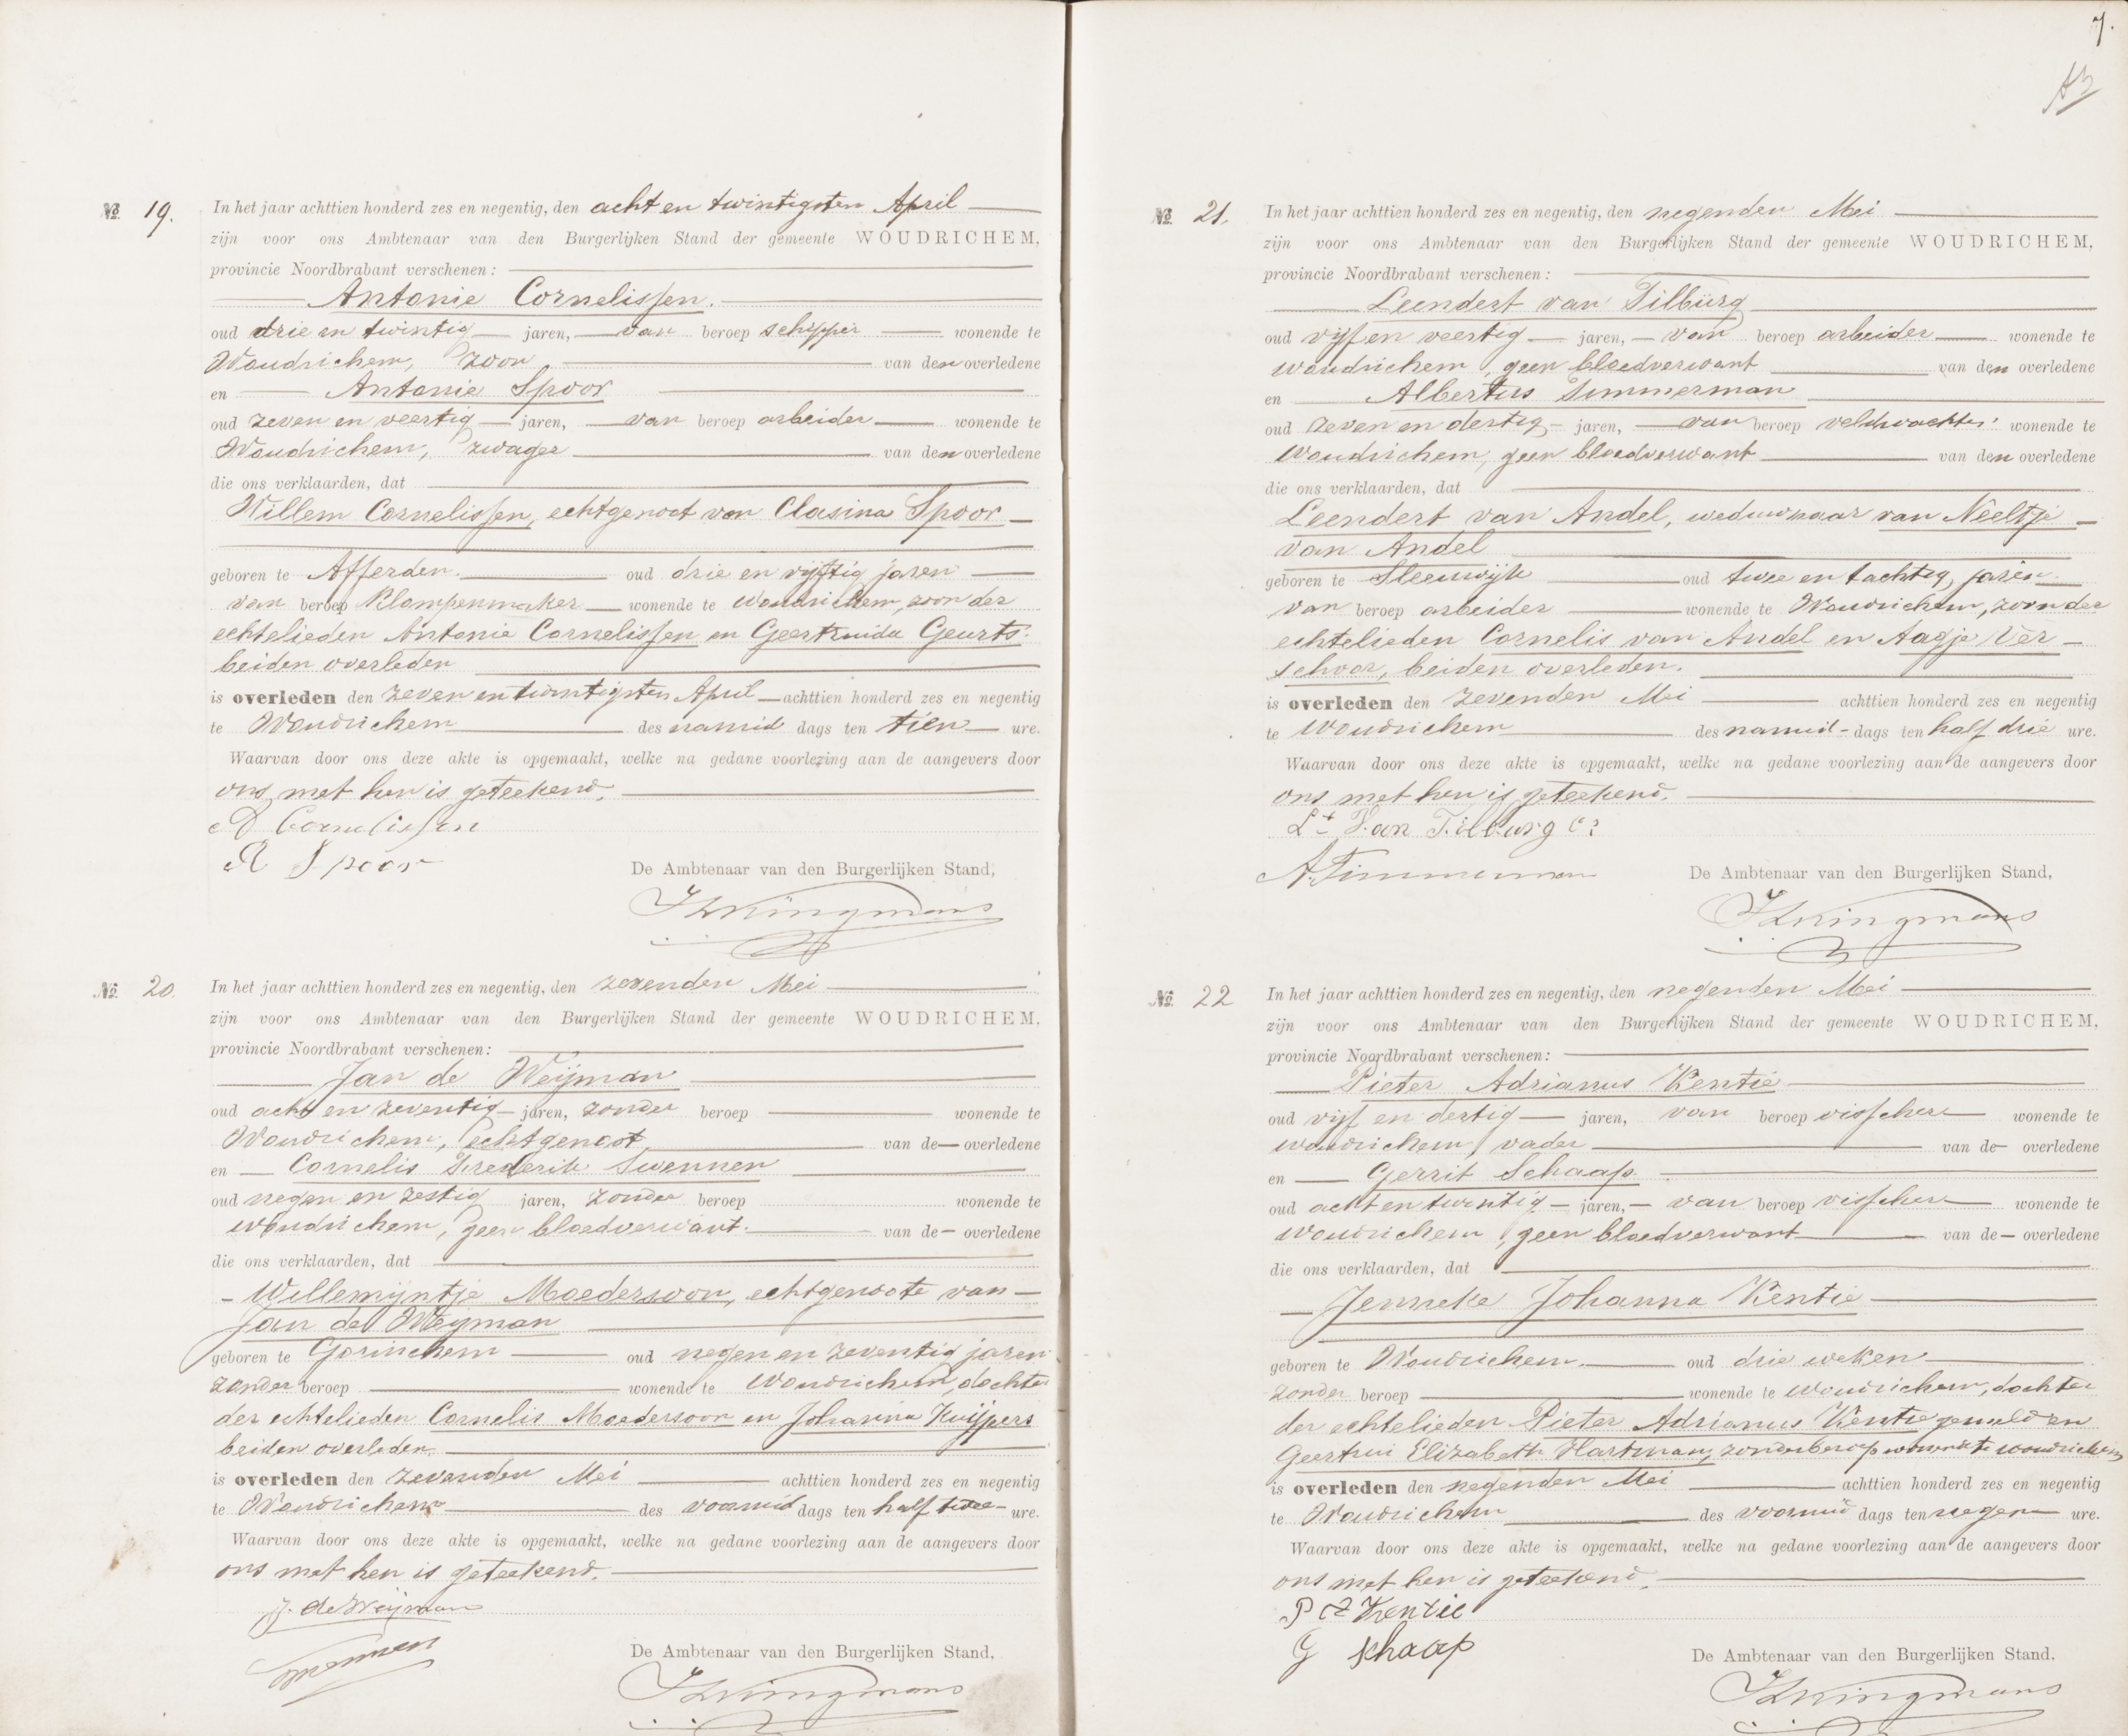 № 19. In het jaar achttien honderd zes en negentig, den acht en twintigsten April
zijn voor ons Ambtenaar van den Burgerlijken Stand der gemeente WOUDRICHEM,
provincie Noordbrabant verschenen:
Antonie Cornelissen.
oud drie en twintig jaren, van beroep schipper wonende te
Woudrichem, zoon van den overledene
en Antonie Spoor
oud zeven en veertig jaren, van beroep arbeider wonende te
Woudrichem, zwager van den overledene
die ons verklaarden, dat
Willem Cornelissen, echtgenoot van Clasina Spoor
geboren te Afferden. oud drie en vijftig jaren
van beroep Klompenmaker wonende te Woudrichem, zoon der
echtelieden Antonie Cornelissen en Geertruida Geurts.
beiden overleden
is overleden den zeven en twintigsten April achttien honderd zes en negentig
te Woudrichem des namid dags ten tien ure.
Waarvan door ons deze akte is opgemaakt, welke na gedane voorlezing aan de aangevers door
ons met hen is geteekend.
A Cornelissen
A Spoor
De Ambtenaar van den Burgerlijken Stand,
№ 20. In het jaar achttien honderd zes en negentig, den zevenden Mei
zijn voor ons Ambtenaar van den Burgerlijken Stand der gemeente WOUDRICHEM,
provincie Noordbrabant verschenen:
Jan de Weijman
oud acht en zeventig jaren, zonder beroep wonende te
Woudrichem, echtgenoot van de overledene
en Cornelis Frederik Swennen
oud negen en zestig jaren, zonder beroep wonende te
Woudrichem, geen bloedverwant. van de overledene
die ons verklaarden, dat
Willemijntje Moedersoon, echtgenoote van
Jan de Weijman
geboren te Gorinchem oud negen en zeventig jaren
zonder beroep wonende te Woudrichem, dochter
der echtelieden Cornelis Moedersoon en Johanna Kuijpers
beiden overleden.
is overleden den zevenden Mei achttien honderd zes en negentig
te Woudrichem des voormid dags ten half twee ure.
Waarvan door ons deze akte is opgemaakt, welke na gedane voorlezing aan de aangevers door
ons met hen is geteekend.
J. de Weijman
Swennen
De Ambtenaar van den Burgerlijken Stand,
7.
№ 21. In het jaar achttien honderd zes en negentig, den negenden Mei
zijn voor ons Ambtenaar van den Burgerlijken Stand der gemeente WOUDRICHEM,
provincie Noordbrabant verschenen:
Leendert van Tilburg
oud vijf en veertig jaren, van beroep arbeider wonende te
Woudrichem, geen bloedverwant van den overledene
en Albertus Timmerman
oud zeven en dertig jaren, van beroep veldwachter wonende te
Woudrichem, geen bloedverwant van den overledene
die ons verklaarden, dat
Leendert van Andel, weduwnaar van Neeltje
van Andel
geboren te Sleeuwijk oud twee en tachtig jaren
van beroep arbeider wonende te Woudrichem, zoon der
echtelieden Cornelis van Andel en Aagje Ver-
schoor, beiden overleden.
is overleden den zevenden Mei achttien honderd zes en negentig
te Woudrichem des namid-dags ten half drie ure.
Waarvan door ons deze akte is opgemaakt, welke na gedane voorlezing aan de aangevers door
ons met hen is geteekend.
Lt Van Tilburg
A. Timmerman
De Ambtenaar van den Burgerlijken Stand,
№ 22 In het jaar achttien honderd zes en negentig, den negenden Mei
zijn voor ons Ambtenaar van den Burgerlijken Stand der gemeente WOUDRICHEM,
provincie Noordbrabant verschenen:
Pieter Adrianus Kentie
oud vijf en dertig jaren, van beroep visscher wonende te
Woudrichem, vader van de overledene
en Gerrit Schaap
oud acht en twintig jaren, van beroep visscher wonende te
Woudrichem, geen bloedverwant van de overledene
die ons verklaarden, dat
Jenneke Johanna Kentie
geboren te Woudrichem. oud drie weken
zonder beroep wonende te Woudrichem, dochter
der echtelieden Pieter Adrianus Kentie gemeld en
Geertrui Elizabeth Hartman, zonder beroep wonende te Woudrichem
is overleden den negenden Mei achttien honderd zes en negentig
te Woudrichem des voormid dags ten negen ure.
Waarvan door ons deze akte is opgemaakt, welke na gedane voorlezing aan de aangevers door
ons met hen is geteekend.
P A Kentie
G Schaap
De Ambtenaar van den Burgerlijken Stand,